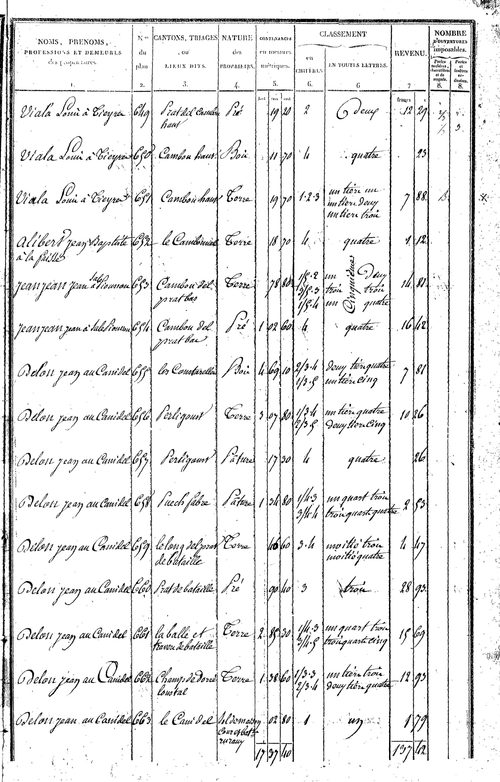 NOMS, PRÉNOMS,
PROFESSIONS ET DEMEURES
des propriétaires
1.
N.os
du
plan
2.
CANTONS, TRIAGES
ou
LIEUX DITS.
3.
NATURE
des
PROPRIÉTÉS.
4.
CONTENANCES
en mesures
métriques.
5.
CLASSEMENT
en
CHIFFRES
6.
EN TOUTES LETTRES.
6
REVENU.
7
NOMBRE
d'OUVERTURES
imposables.
8.
8.
francs
Viala Louis à Vieyra 649 Prat del Cambou haut Pré 19 20 2 deux 12 29
Viala Louis à Vieyra 650 Cambou haut Bois 11 70 4 quatre 23
Viala Louis à Vieyra 651 Cambou haut Terre 19 70 1-2-3 un tiers un un tiers deux un tiers trois 7 88
Alibert jean Baptiste 652 Terre 18 70 4 quatre 1 12
jeanjean jean 653 Cambou del prat bas Terre 78 80 1/5-2 3/5-3 1/5-4 un deux trois trois un quatre cinquièmes 14 81
jeanjean jean 654 Cambou del prat bas Pré 1 02 60 4 quatre 16 42
Delon jean au Canidel 655 Bois 4 69 10 2/3-4 1/3-5 deux tiers quatre un tiers cinq 7 81
Delon jean au Canidel 656 Perligoust Terre 3 07 80 1/3-4 2/3-5 un tiers quatre deux tiers cinq 10 26
Delon jean au Canidel 657 Perligoust Pâture 17 30 4 quatre 26
Delon jean au Canidel 658 Puech fabre Pâture 1 34 80 1/4-3 3/4-4 un quart trois trois quarts quatre 2 53
Delon jean au Canidel 659 le long del prat de bataille Terre 46 60 3-4 moitié trois moitié quatre 4 47
Delon jean au Canidel 660 Prat de bataille Pré 90 40 3 trois 28 93
Delon jean au Canidel 661 la balle et Terre 2 85 30 1/4-3 3/4-5 un quart trois trois quarts cinq 15 69
Delon jean au Canidel 662 Champ de Terre 1 38 60 1/3-3 2/3-4 un tiers trois deux tiers quatre 12 93
Delon jean au Canidel 663 le Canidel 02 80 1 un 1 79
17 37 40 137 42